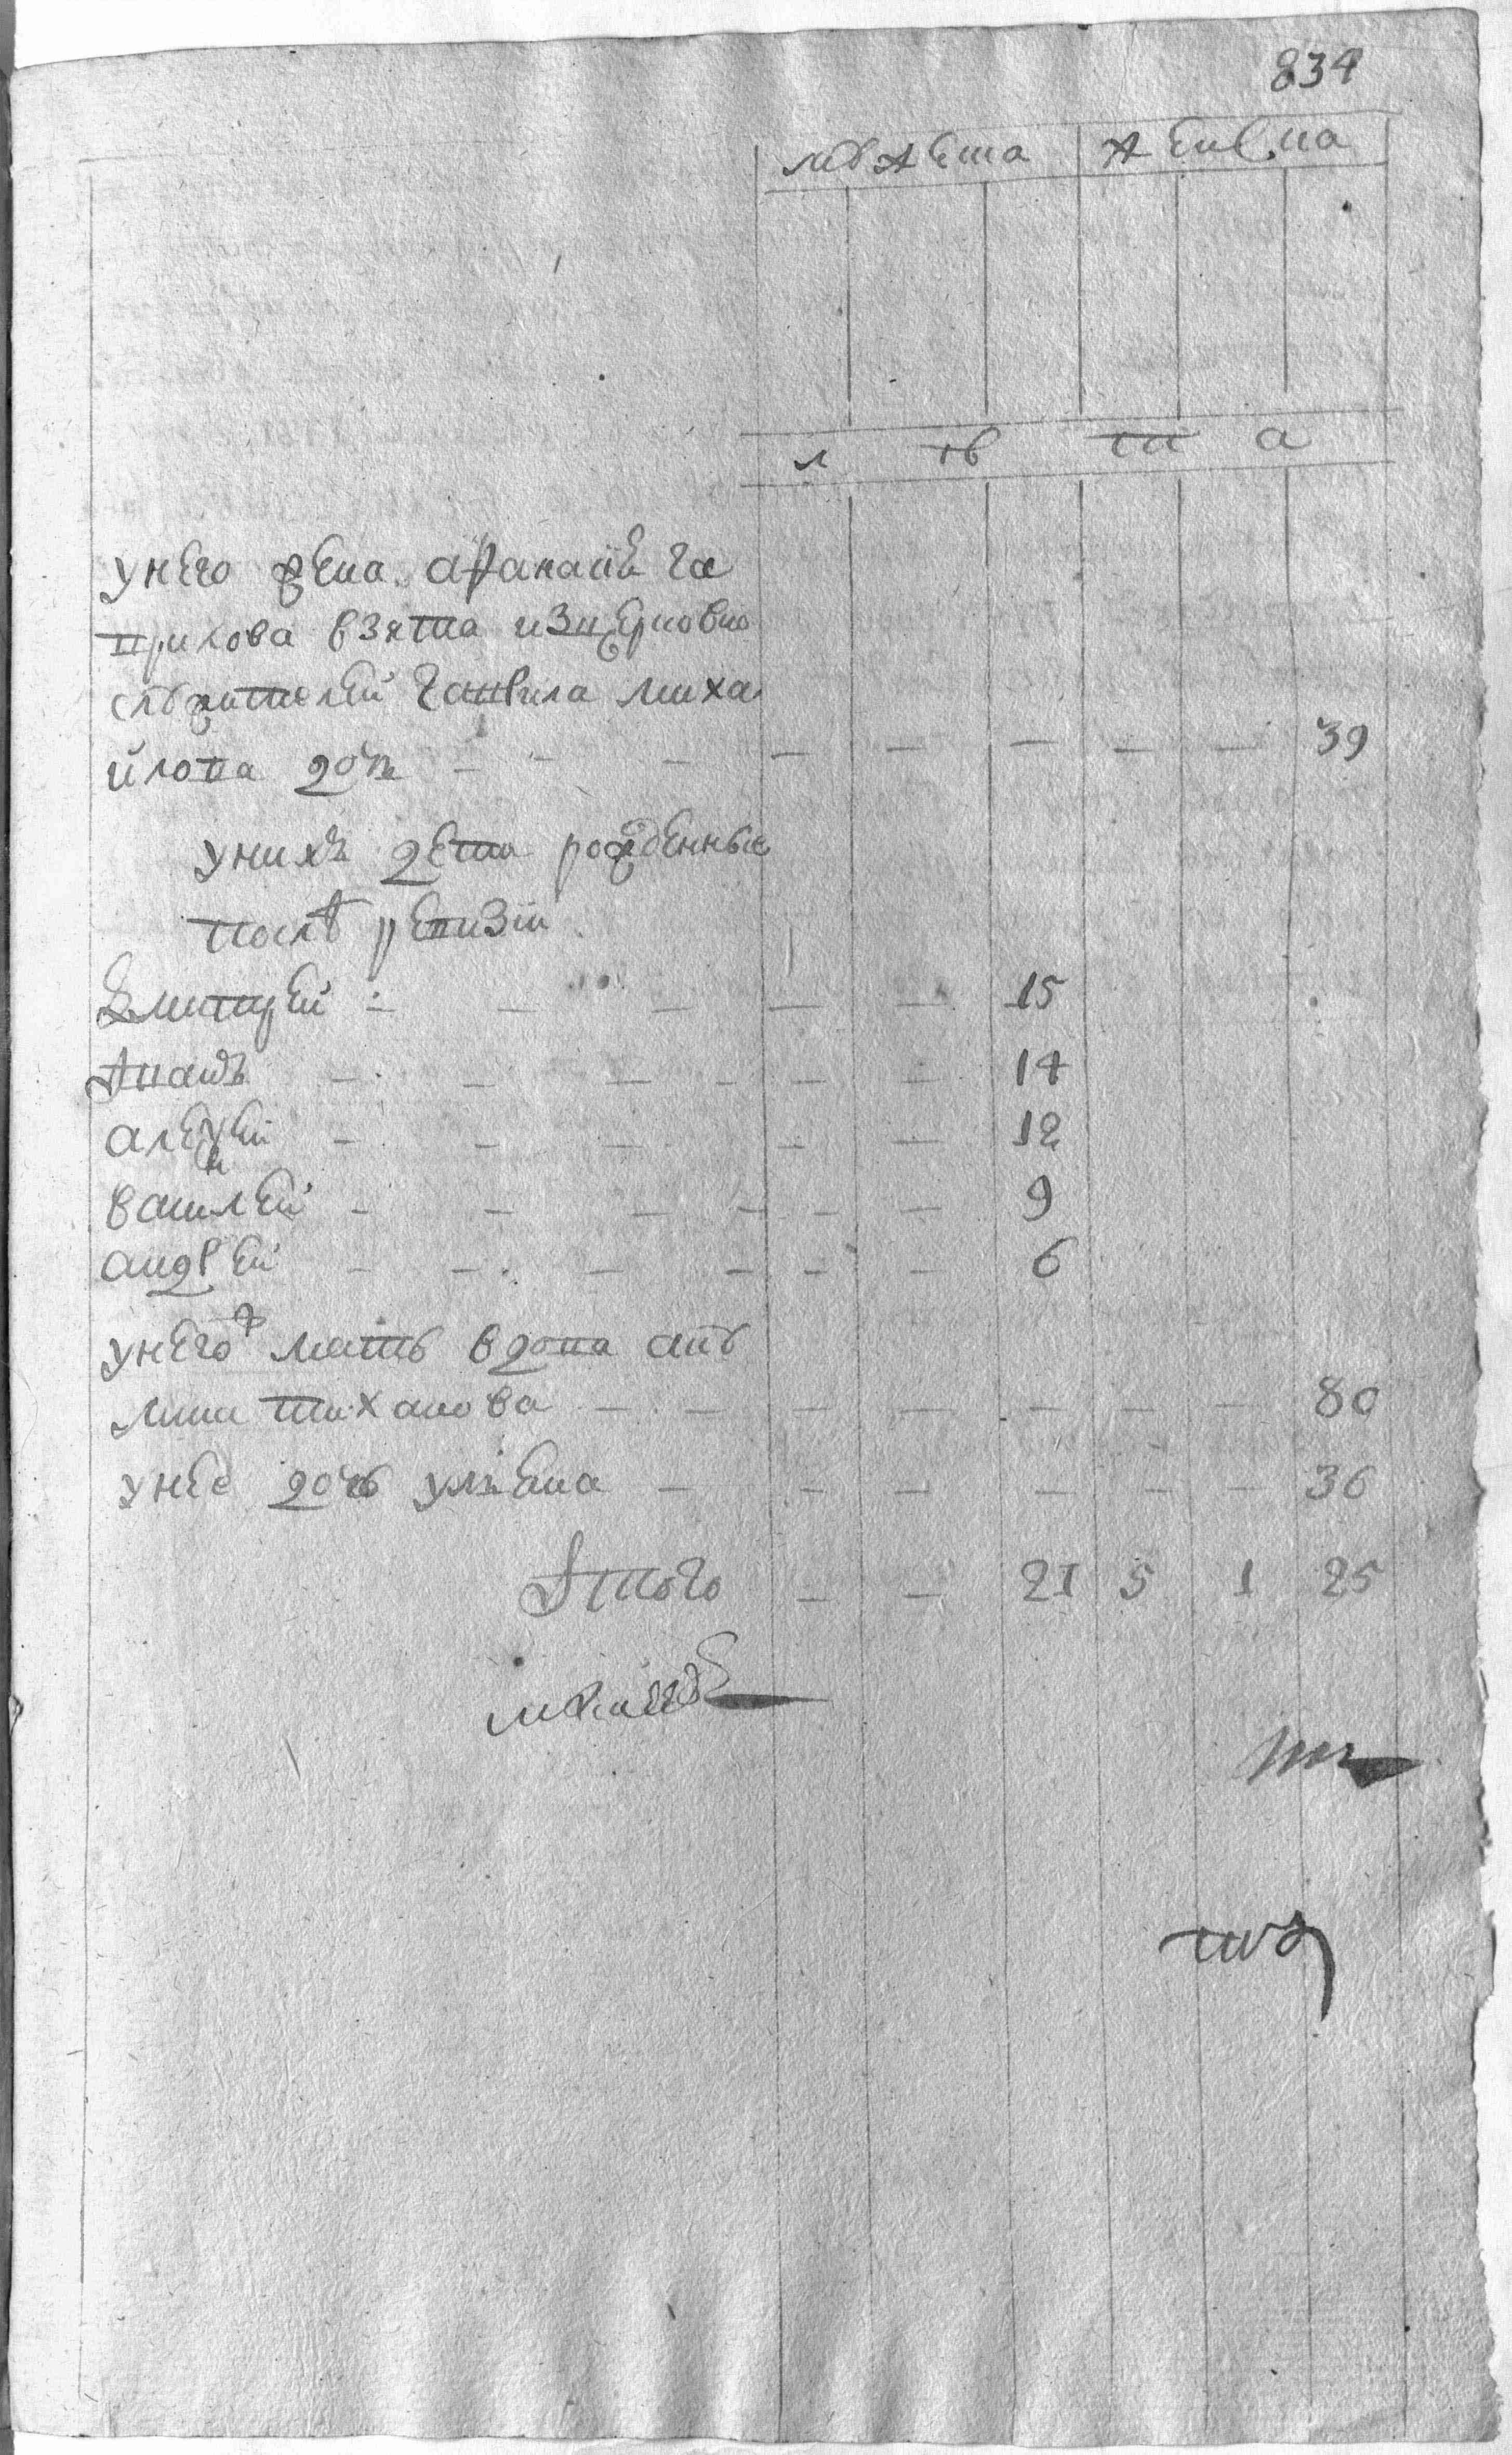 834
мужеска женска
л ѣ т а
у него жена афанасия га
врилова взята из церковно
служителей гаврила миха
йлова дочь 39
у них дети рожденные
после ревизии
Дмитрей 15
Иванъ 14
алексей 12
василей 9
андрей 6
у него ж мать вдова аку
лина тиханова 80
у нее дочь ульяна 36
Итого 21 5 1 25